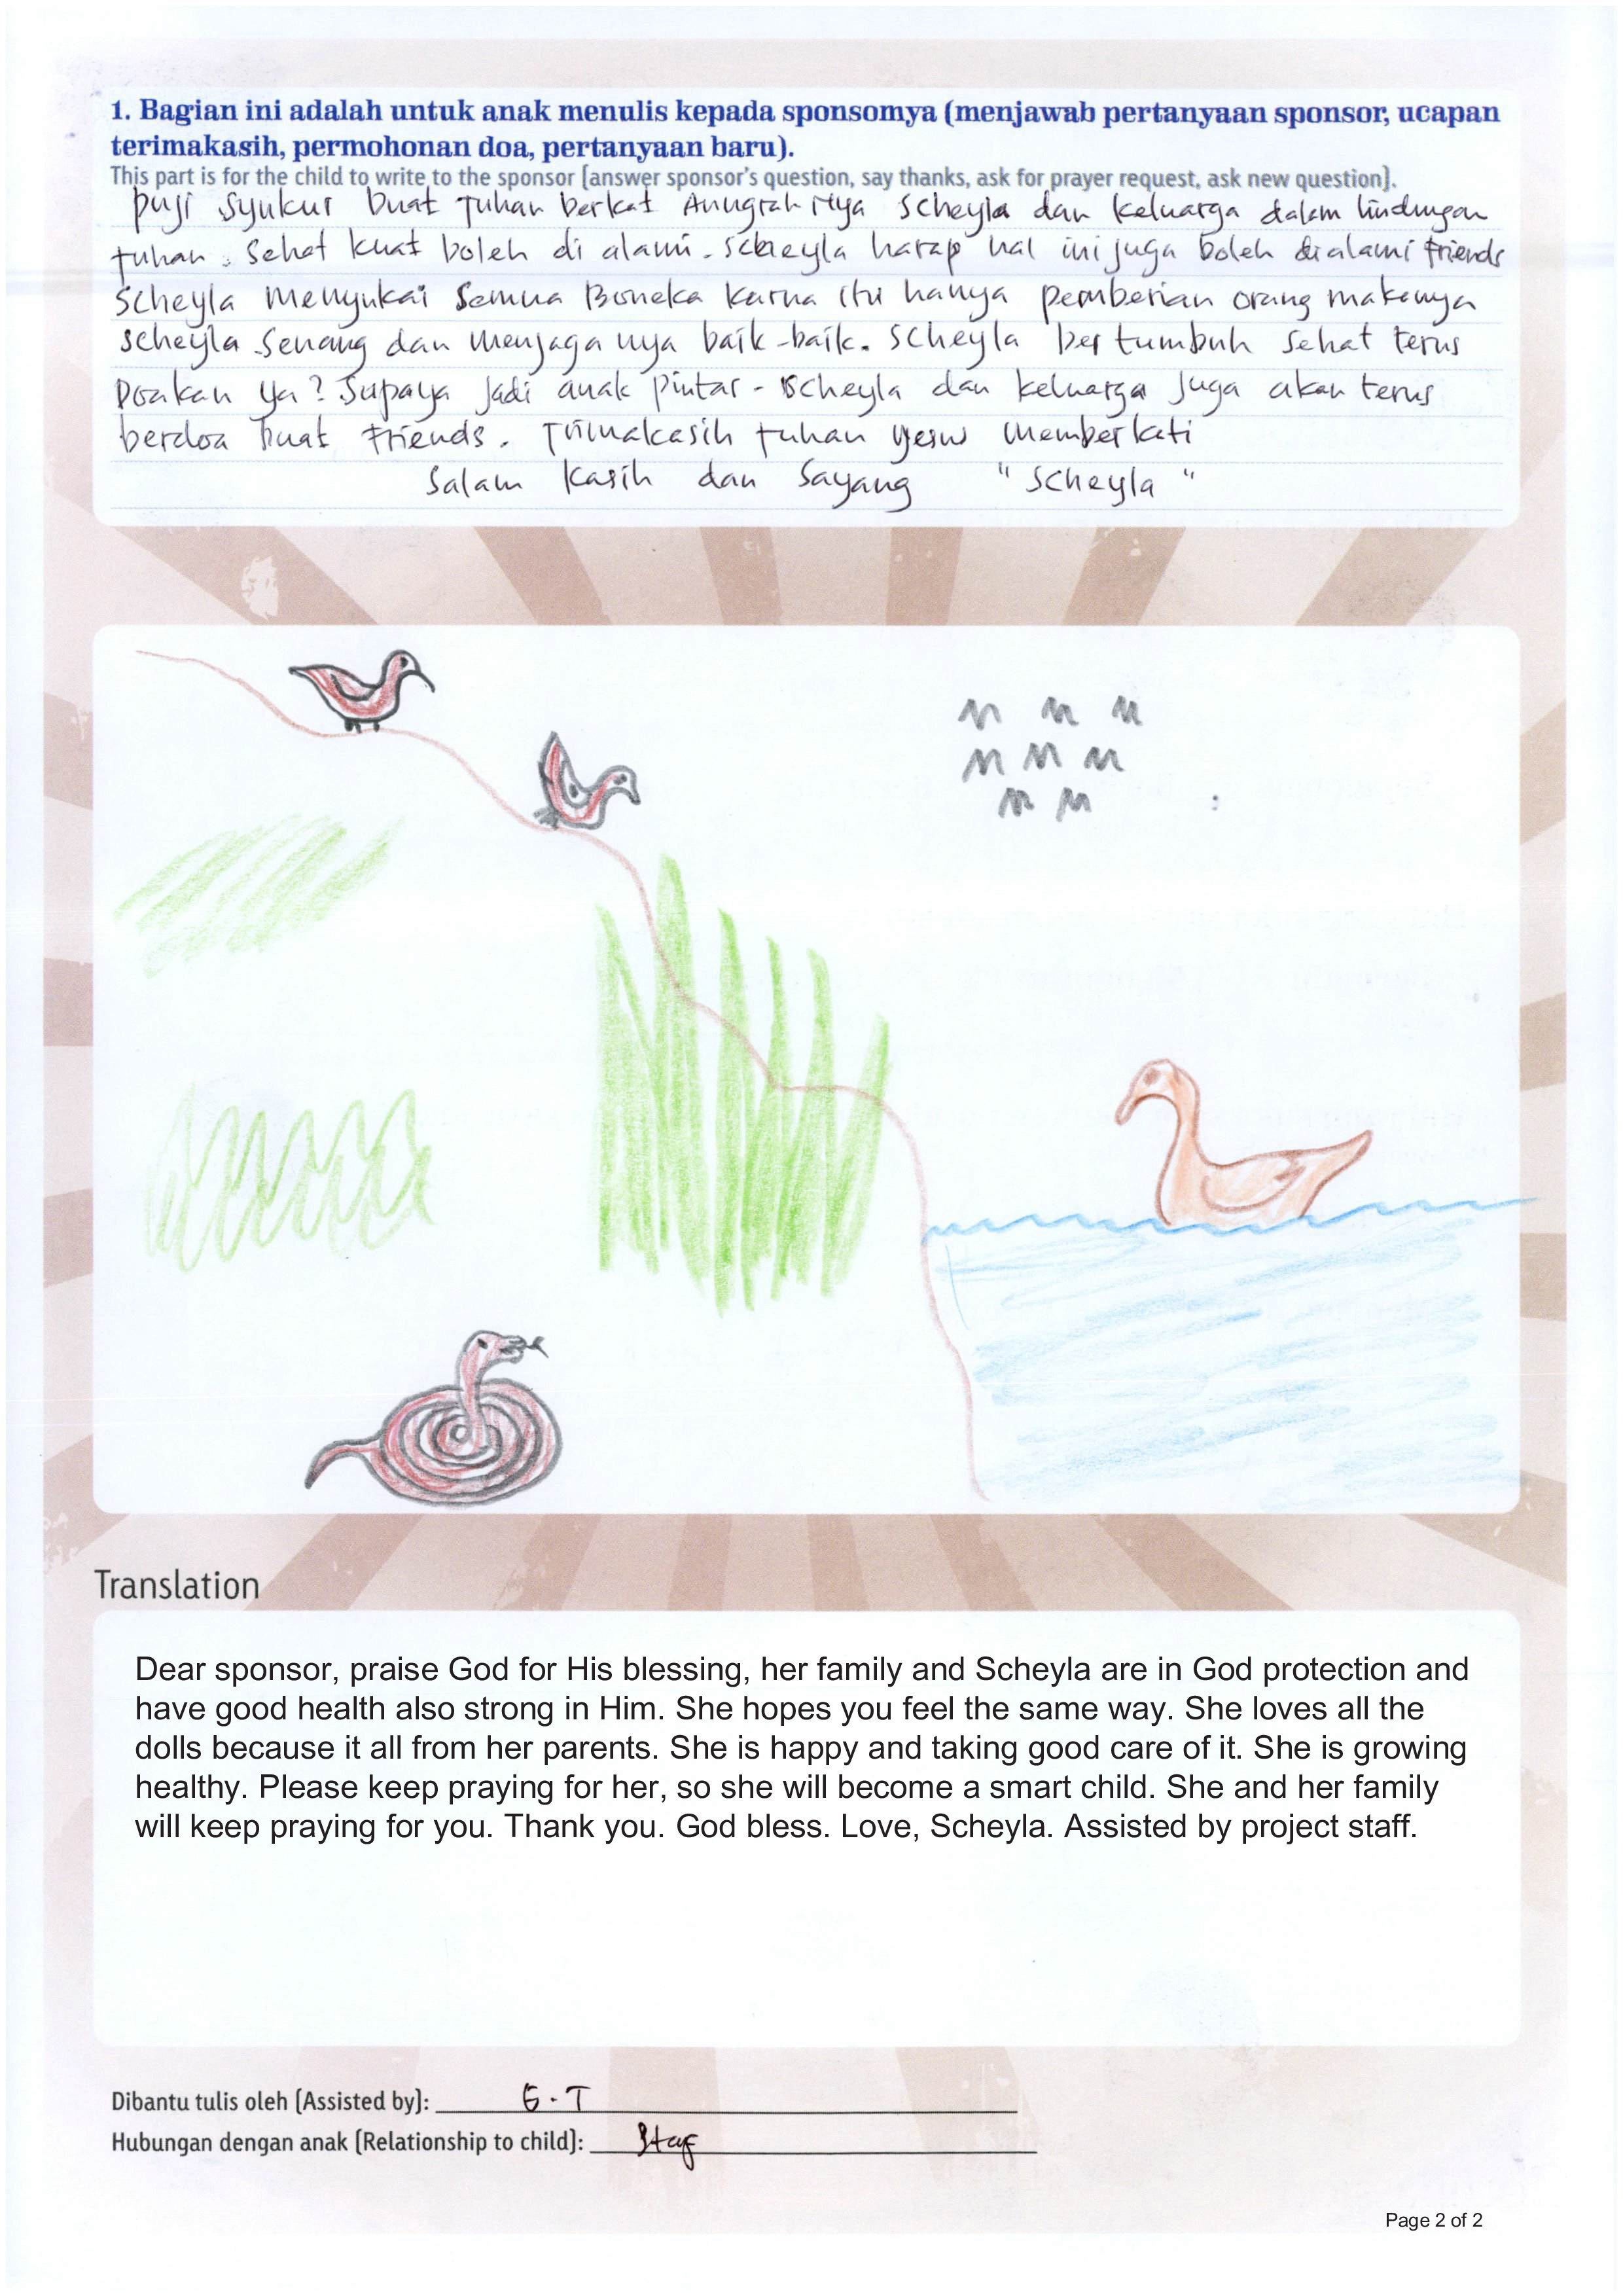 1. Bagian ini adalah untuk anak menulis kepada sponsomya (menjawab pertanyaan sponsor, ucapan
terimakasih, permohonan doa, pertanyaan baru).
This part is for the child to write to the sponsor (answer sponsor's question, say thanks, ask for prayer request, ask new question).
puji syukur buat Tuhan berkat Anugrah Nya scheyla dan keluarga dalam lindungan
tuhan. sehat kuat boleh di alami. scheyla harap hal ini juga boleh dialami friends
scheyla menyukai semua Boneka karna itu hanya pemberian orang makanya
scheyla senang dan menjaga nya baik-baik. scheyla bertumbuh sehat terus
Doakan ya? Supaya jadi anak pintar - scheyla dan keluarga juga akan terus
berdoa buat Friends. Trimakasih tuhan yesus memberkati
Salam kasih dan sayang "scheyla"
Translation
Dear sponsor, praise God for His blessing, her family and Scheyla are in God protection and
have good health also strong in Him. She hopes you feel the same way. She loves all the
dolls because it all from her parents. She is happy and taking good care of it. She is growing
healthy. Please keep praying for her, so she will become a smart child. She and her family
will keep praying for you. Thank you. God bless. Love, Scheyla. Assisted by project staff.
Dibantu tulis oleh (Assisted by): G.T
Hubungan dengan anak (Relationship to child): Staf
Page 2 of 2